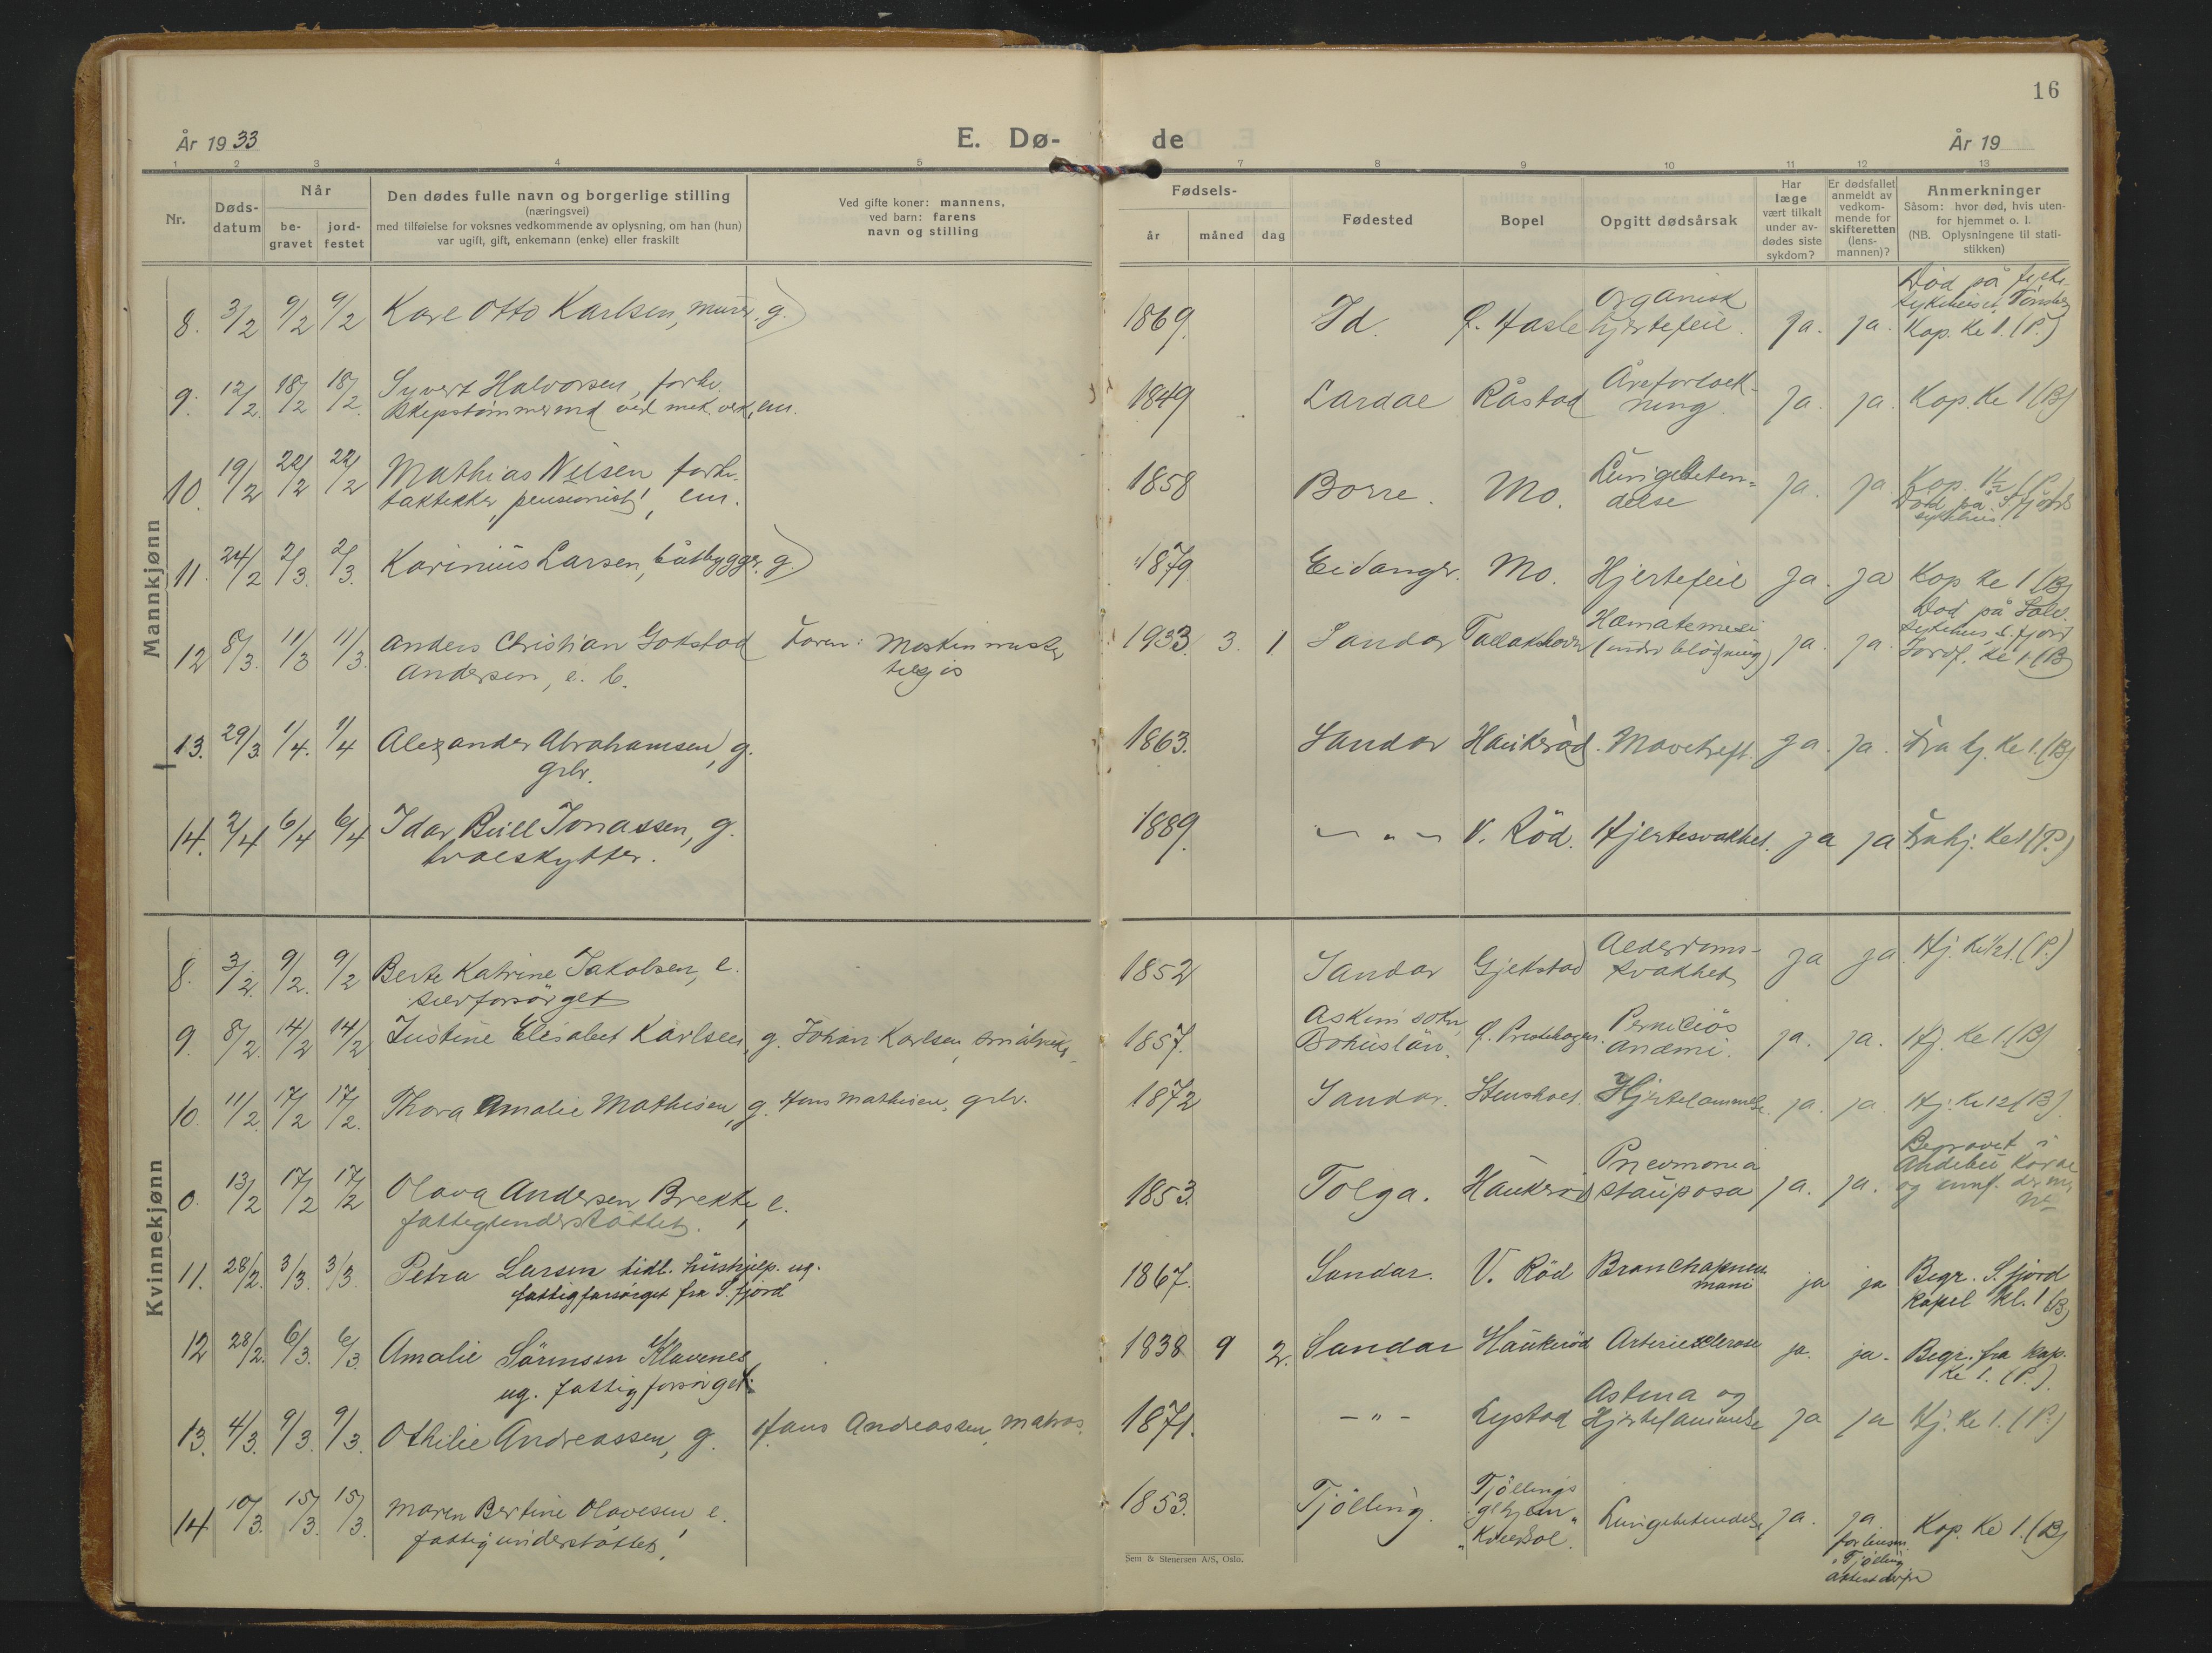 16
År 1933 E. Dø- de År 19
1 2 3 4 5 7 8 9 10 11 12 13
Nr.
Døds-
datum
Når
be-
gravet
jord-
festet
Den dødes fulle navn og borgerlige stilling
(næringsvei)
med tilføielse for voksnes vedkommende av oplysning, om han (hun)
var ugift, gift, enkemann (enke) eller fraskilt
Ved gifte koner: mannens,
ved barn: farens
navn og stilling
Fødsels-
år
måned
dag
Fødested
Bopel
Opgitt dødsårsak
Har
læge
vært tilkalt
under av-
dødes siste
sykdom?
Er dødsfallet
anmeldt av
vedkom-
mende for
skifteretten
(lens-
mannen)?
Anmerkninger
Såsom: hvor død, hvis uten-
for hjemmet o. l.
(NB. Oplysningene til stati-
stikken)
Mannkjønn
8. 3/2 9/2 9/2 Karl Otto Karlsen, murer, g. 1869. Id. Hasle
Organisk
hjertefeil. ja. ja.
Død på
sykehuset, Tønsberg
Kap. kl 1. (P.)
9. 12/2 18/2 18/2 Syvert Halvorsen, forhv.
skipstømmermd ved mek. verk, em.
1849 Lardal Råstad
Åreforkalk-
ning. ja. ja. Kap. kl 1 (B)
10. 19/2 22/2 22/2 Mathias Nilsen forhv.
taktekker, pensionist, em.
1858 Borre. Mo.
Lungebeten-
delse ja. ja
Kap. 1½ (P.)
Død på S.fjords
sykehus
11. 24/2 2/3. 2/3. Karinius Larsen, båtbygger, g.
1879 Eidanger. Mo. Hjertefeil ja. ja Kap kl 1 (B)
12 8/3. 11/3 11/3. Anders Christian Gokstad
Andersen, e. b.
Faren: Maskinmester
1933. 3. 1. Sandar
Hæmatemesi
(indre blødning) ja. ja.
Død på
sykehus S.fjord
Jordf. kl 1 (B)
13. 29/3 1/4. 1/4 Alexander Abrahamsen, g.
grbr.
1863. Sandar Haukerød. Mavekreft. ja. ja. Fra hj. kl 1. (B)
14. 2/4 6/4 6/4 Idar Bull Jonassen, g.
hvalskytter.
1889. — " — V. Röd. Hjertesvakhet. ja ja Fra hj. kl 1 (P.)
Kvinnekjønn
8. 3/2. 9/2. 9/2 Berte Katrine Jakobsen, e.
selvforsörget
1852 Sandar Gjekstad
Alderdoms-
svakhet ja ja Hj. kl ½1. (P.)
9. 8/2. 14/2 14/2 Justine Elisabet Karlsen, g. Johan Karlsen,
1857.
Askum sokn,
Bohuslän.
Perniciös
anämi. ja. ja. Hj. kl 1 (B)
10. 11/2. 17/2 17/2. Thora Amalie Mathisen, g. Hans Mathisen, grbr.
1872 Sandar. Stenshol. Hjertelammelse. ja. ja. Hj. kl 12 (B)
0. 13/2 17/2 17/2 Olava Andersen Brekke, e.
fattigunderstøttet.
1853. Tolga. Haukerød
Pneumonia
ja. ja.
Begravet i
Andebu
11. 28/2. 3/3. 3/3. Petra Larsen tidl. hushjelp. ug.
fattigforsörget fra S.fjord
1867. Sandar. V. Röd Bronchopneu-
moni ja ja
Begr. S.fjord
Kapel kl. 1 (B)
12 28/2. 6/3. 6/3. Amalie Sörensen Klavenes,
ug. fattigforsörget.
1838 9 2. Sandar Haukerød Arteriesklerose ja. ja.
Begr. fra kap.
kl 1. (P.).
13. 4/3. 9/3. 9/3. Othilie Andreassen, g. Hans Andreassen, matros.
1871. — " — Lystad
Astma og
Hjertelammelse ja ja Hj. kl 1. (P.)
14 10/3. 15/3. 15/3. Maren Bertine Olavesen, e.
fattigunderstöttet.
1853. Tjölling.
Tjöllings
glhjem
Lungebetendelse ja. ja.
for lensm.
i Tjölling
Kap. kl 1. (B)
Sem & Stenersen A/S, Oslo.